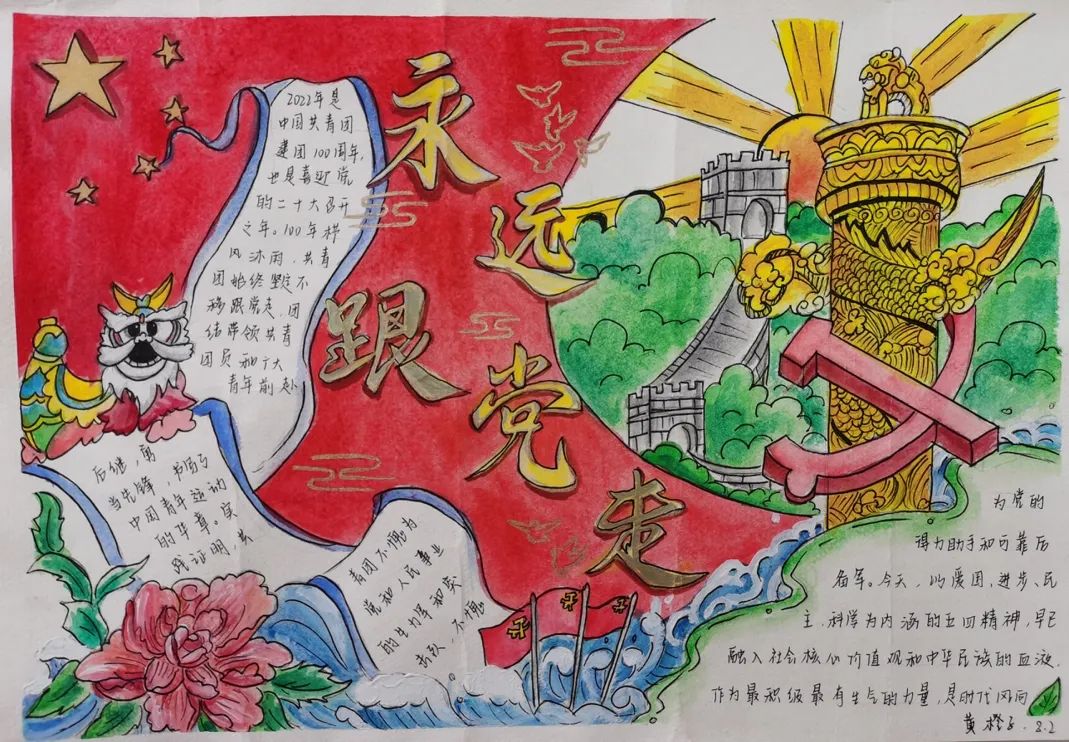 永
远
跟
党
走
2022年是
中国共青团
建团100周年,
也是喜迎党
的二十大召开
之年。100年栉
风沐雨,共青
团始终坚定不
移跟党走,团
结带领共青
团员和广大
青年前赴
后继,勇
当先锋,书写了
中国青年运动
的华章。实
践证明,共
青团不愧为
党和人民事业
的生力军和突
击队,不愧
为党的
得力助手和可靠后
备军。今天,以爱国,进步、民
主,科学为内涵的五四精神,早已
融入社会核心价值观和中华民族的血液.
作为最积极最有生气的力量,是时代风向
黄橙子. 8.2